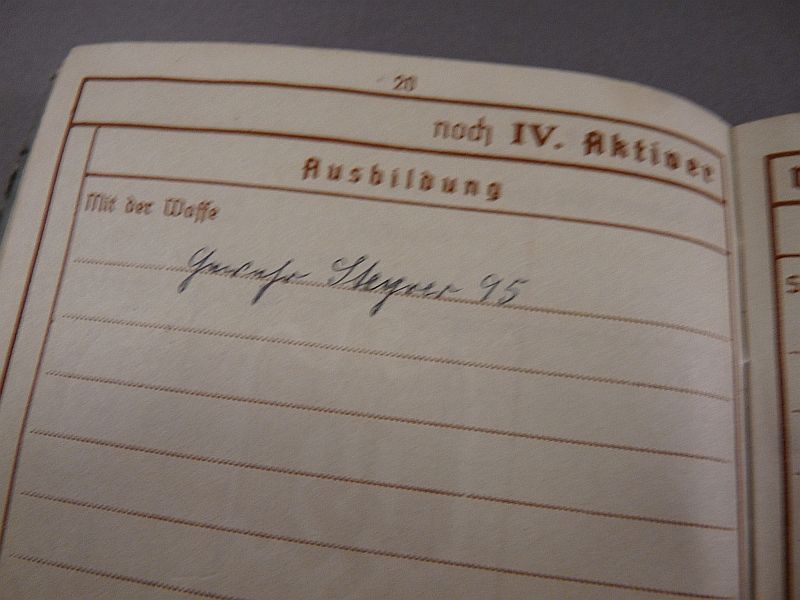 20
noch IV. Aktiver
Ausbildung
Mit der Waffe
Gewehr Steyer 95